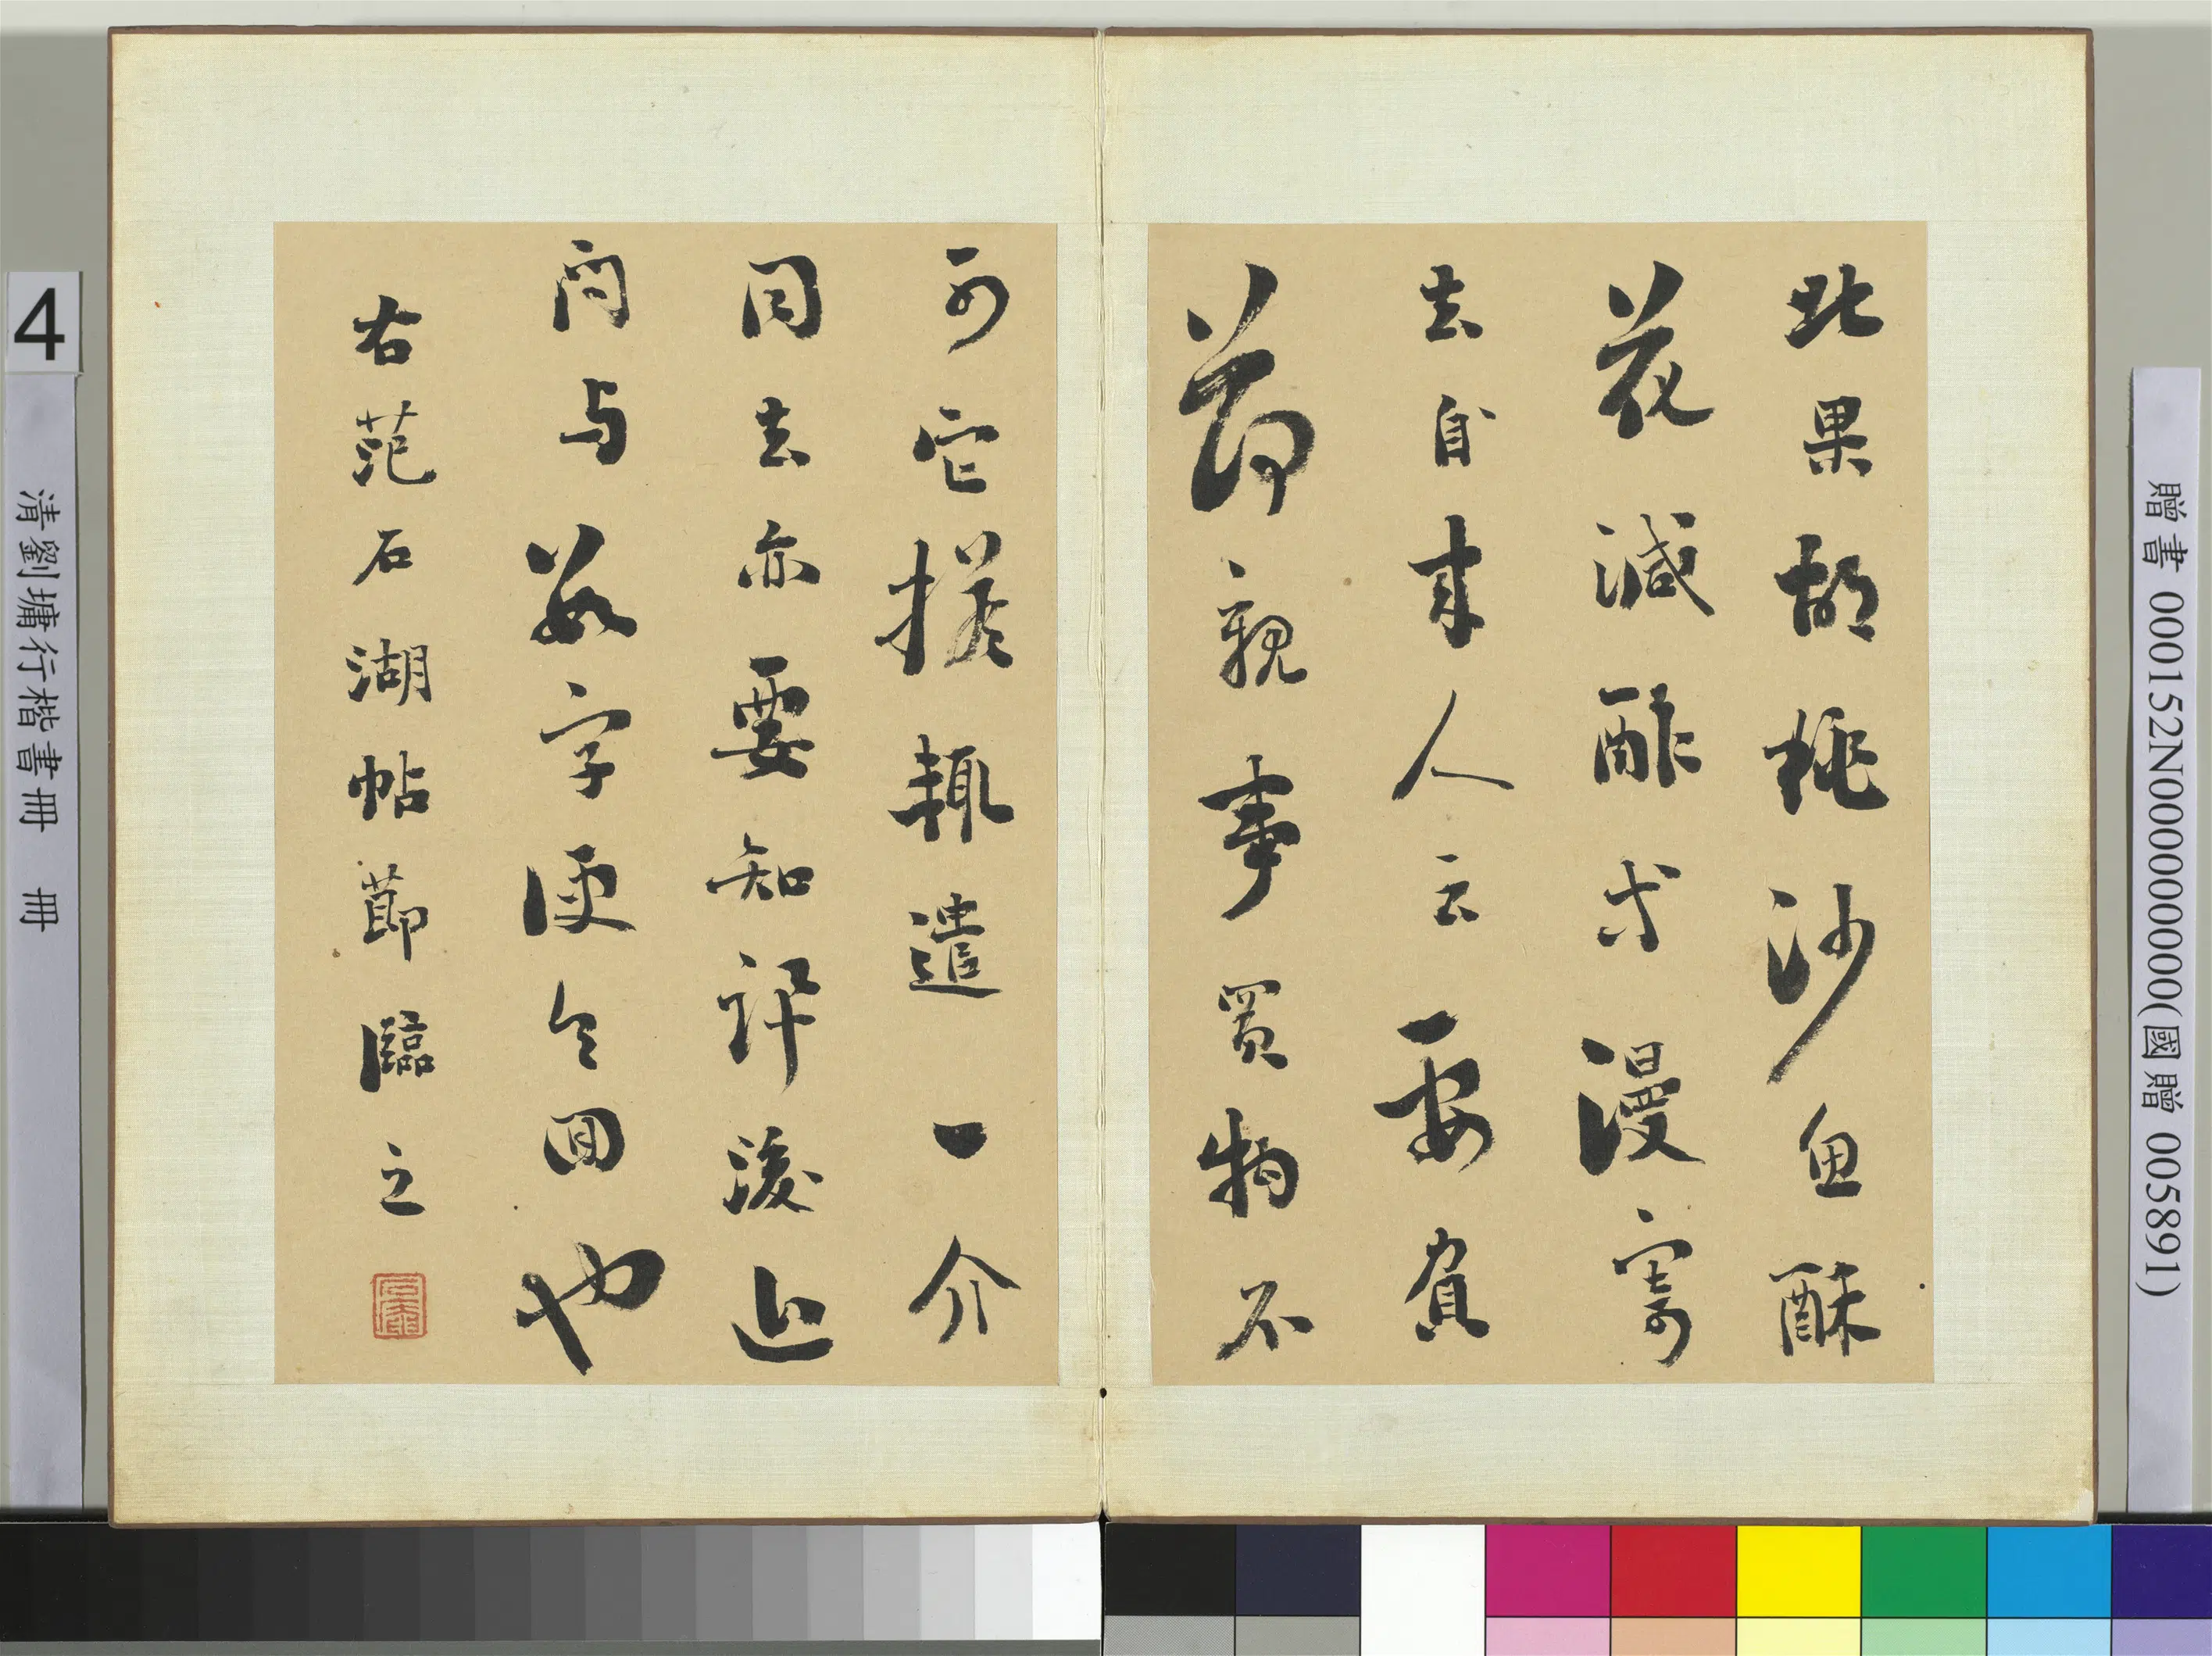 贈書 000152N000000000(國贈 005891)
北果胡桃沙魚酥
花減酢等漫寄
去自來人云要
莭親事買物不
可它擬輒遣一介
同去亦要知許浚近
問与數字便令回也
右范石湖帖莭臨之
石庵
4
清劉墉行楷書冊 冊